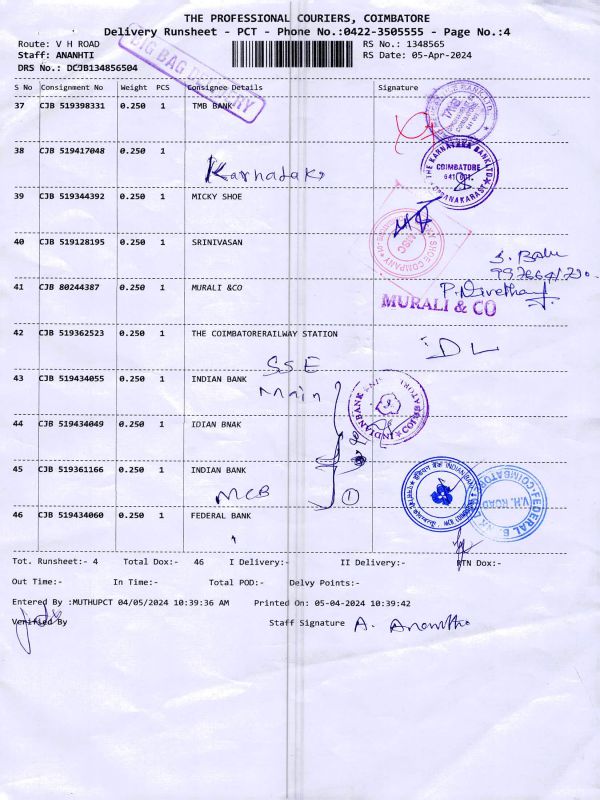 THE PROFESSIONAL COURIERS, COIMBATORE
Delivery Runsheet - PCT - Phone No.:0422-3505555 - Page No.:4
Route: V H ROAD
RS No.: 1348565
Staff: ANANHTI
RS Date: 05-Apr-2024
DRS No.: DCJB134856504
BIG BAG DELIVERY
S No Consignment No Weight PCS Consignee Details Signature
37 CJB 519398331 0.250 1 TMB BANK
38 CJB 519417048 0.250 1
Karnataka
THE KARNATAKA BANK LTD
COIMBATORE
641 001
39 CJB 519344392 0.250 1 MICKY SHOE
40 CJB 519128195 0.250 1 SRINIVASAN
S. Babu
41 CJB 80244387 0.250 1 MURALI &CO
MURALI & CO
42 CJB 519362523 0.250 1 THE COIMBATORERAILWAY STATION
IDL
SSE
43 CJB 519434055 0.250 1 INDIAN BANK
Main
INDIANBANK
44 CJB 519434049 0.250 1 IDIAN BNAK
45 CJB 519361166 0.250 1 INDIAN BANK
MCB
1
46 CJB 519434060 0.250 1 FEDERAL BANK
FEDERAL BANK
V.H. ROAD
Tot. Runsheet:- 4 Total Dox:- 46 I Delivery:- II Delivery:- RTN Dox:-
Out Time:- In Time:- Total POD:- Delvy Points:-
Entered By :MUTHUPCT 04/05/2024 10:39:36 AM Printed On: 05-04-2024 10:39:42
Verified By Staff Signature A. Ananthi